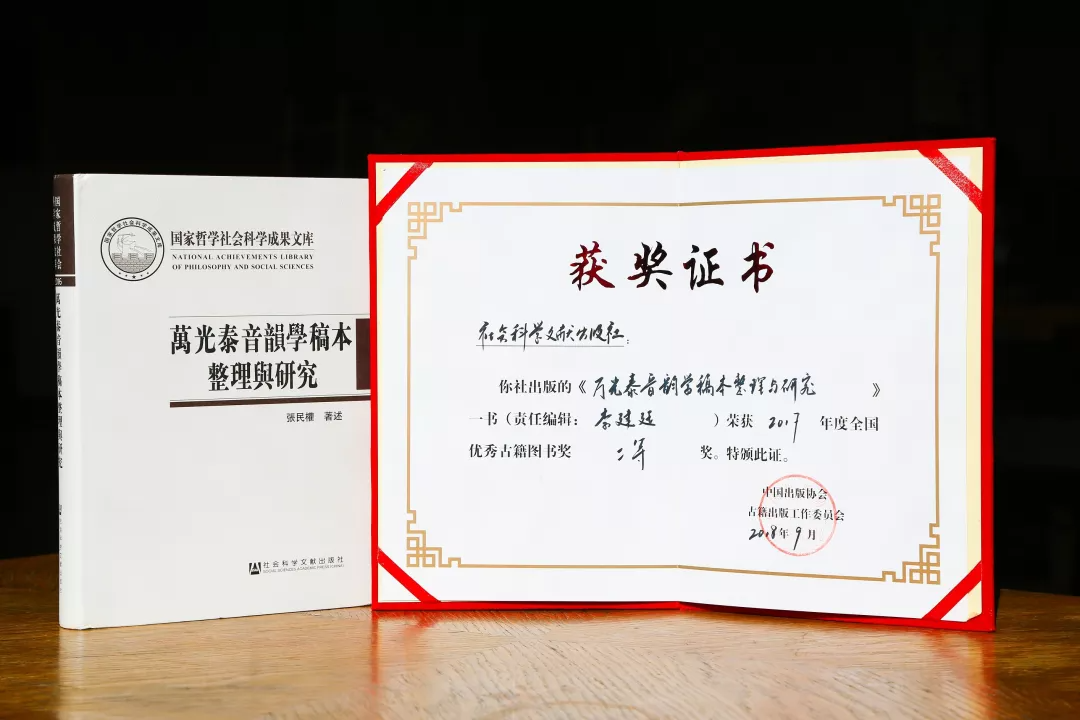 国家哲学社会科学成果文库
NATIONAL ACHIEVEMENTS LIBRARY
OF PHILOSOPHY AND SOCIAL SCIENCES
萬光泰音韻學稿本
整理與研究
張民權 著述
社会科学文献出版社
SOCIAL SCIENCES ACADEMIC PRESS (CHINA)
萬光泰音韻學稿本整理與研究
获奖证书
社会科学文献出版社:
你社出版的《万光泰音韵学稿本整理与研究》
一书(责任编辑: 李建廷 )荣获 2017 年度全国
优秀古籍图书奖 二等 奖。特颁此证。
中国出版协会
古籍出版工作委员会
2018年9月